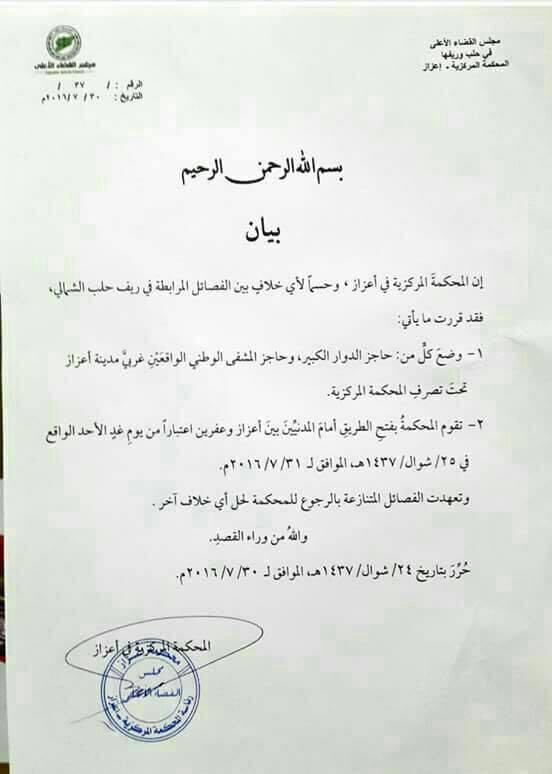 مجلس القضاء الأعلى
في حلب وريفها
المحكمة المركزية - إعزاز
مجلس القضاء الأعلى
الرقم : / ٣٧ /
التاريخ : ٣٠ / ٧ / ٢٠١٦م
بسم الله الرحمن الرحيم
بيان
إن المحكمةَ المركزية في أعزاز ، وحسماً لأي خلافٍ بين الفصائل المرابطة في ريف حلب الشمالي،
فقد قررت ما يأتي:
١- وضعَ كلٍّ من: حاجز الدوار الكبير، وحاجز المشفى الوطني الواقعَيْنِ غربيَّ مدينة أعزاز
تحتَ تصرفِ المحكمة المركزية.
٢- تقوم المحكمةُ بفتح الطريقِ أمامَ المدنيِّينَ بينَ أعزاز وعفرين اعتباراً من يومِ غدٍ الأحد الواقع
في ٢٥/ شوال/ ١٤٣٧هـ، الموافق لـ ٣١/ ٧/ ٢٠١٦م.
وتعهدت الفصائل المتنازعة بالرجوع للمحكمة لحل أي خلاف آخر .
واللهُ من وراء القصدِ.
حُرِّرَ بتاريخ ٢٤/ شوال/ ١٤٣٧هـ، الموافق لـ ٣٠/ ٧/ ٢٠١٦م.
المحكمة المركزية في أعزاز
مجلس
القضاء الأعلى
رئاسة المحكمة المركزية - اعزاز